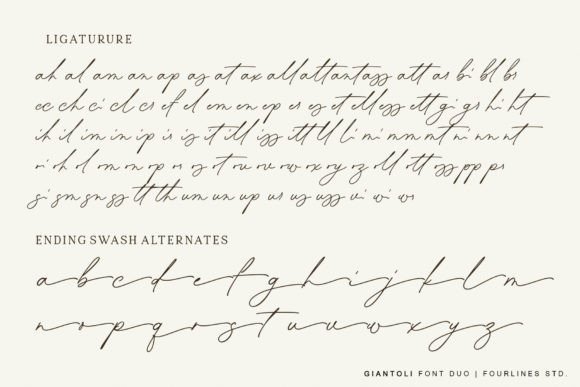 LIGATURURE
ah al am an ap as at ax all att an tt ass att as bi bl br
ec ch ci cl cs ef el em en ep er es et ell ess ett gi gs hi ht
ih il im in ip is is it ill iss itt tl li mi mm mt ni nn nt
ri oh ol om on op or os ot ou ov ow ox oy oz oll ott oss pp ps
si sm sn ss tt th um un up us us uss vi wi ws
ENDING SWASH ALTERNATES
a b c d e f g h i j k l m
n o p q r s t u v w x y z
GIANTOLI FONT DUO | FOURLINES STD.